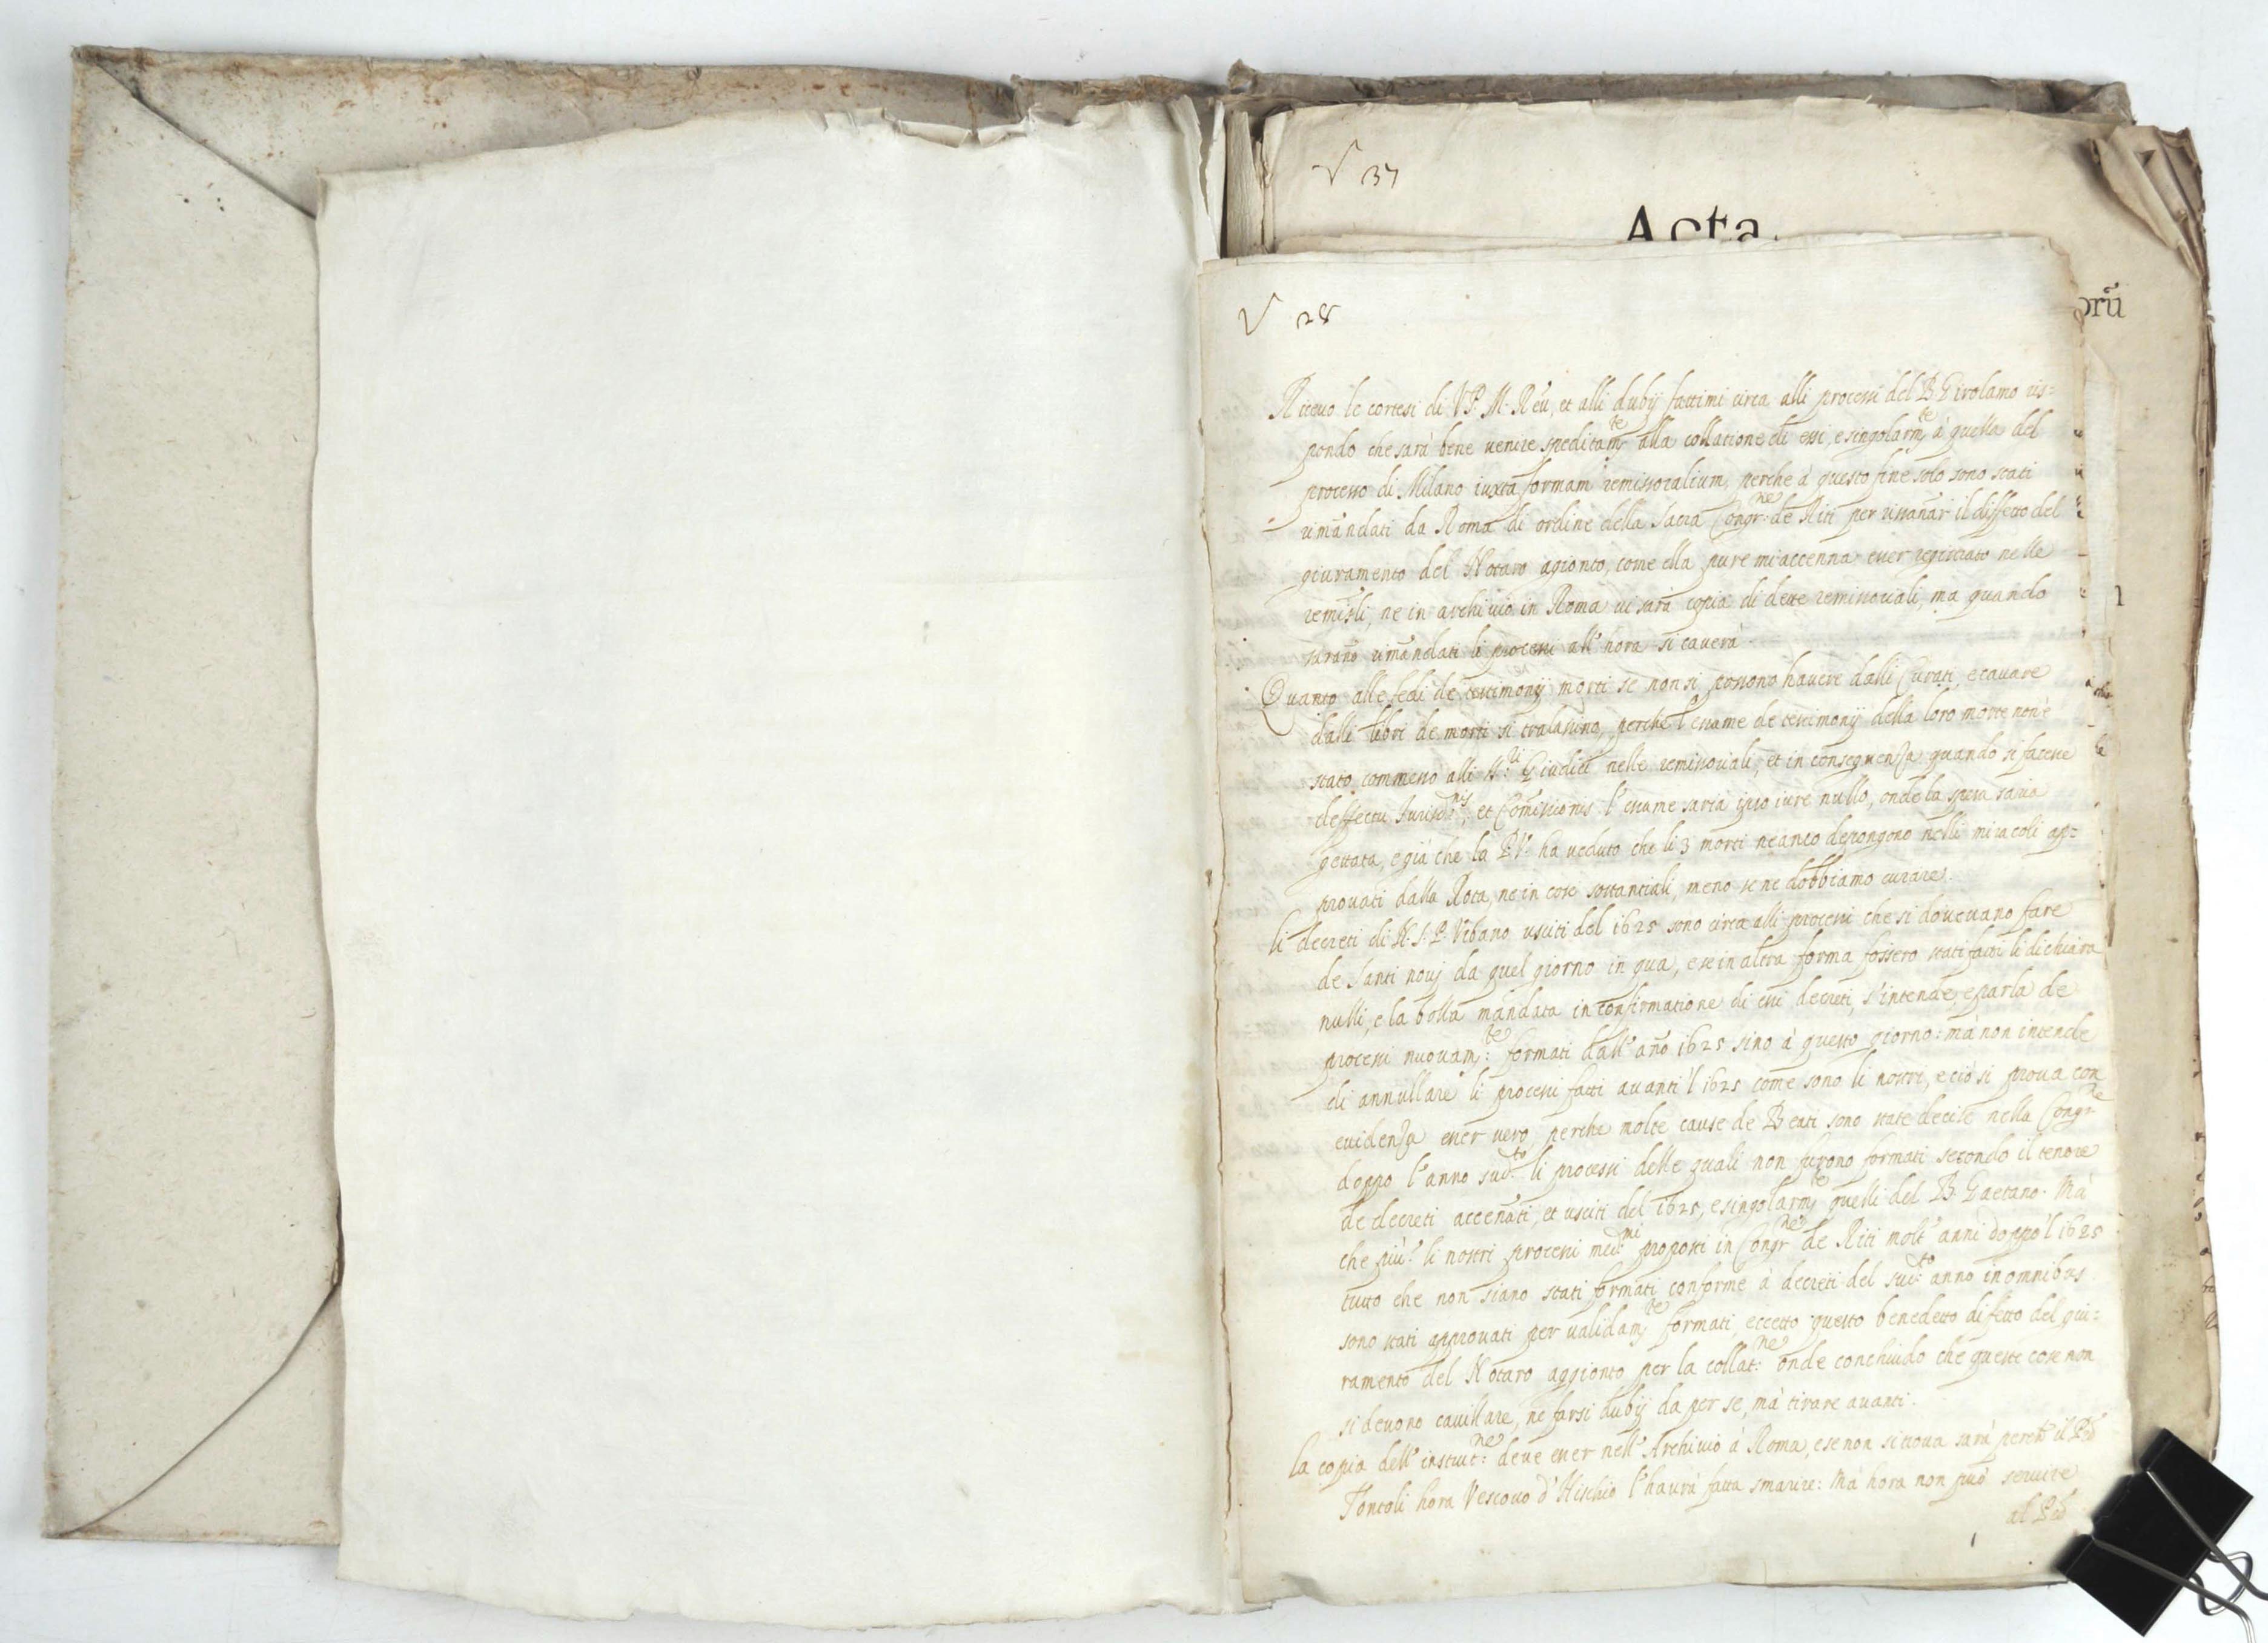 V 37
Acta.
orũ
V 28
Ricevo le cortesi di V.P. M. Reu, et alli dubij fattimi circa alli processi del B. Girolamo ris=
pondo che sarà bene venire speditamte alla collatione di essi, e singolarmte à quella del
processo di Milano iuxta formam remissorialium, perche à questo fine solo sono stati
rimãndati da Roma di ordine della Sacra Congr.ne de Riti per rissanar il diffetto del
giuramento del Notaro agionto, come ella pure mi accenna esser registrato nelle
remisli, ne in archivio in Roma vi sarà copia di dette remissoriali, ma quando
sarãno rimãndati li processi all'hora si cauerà.
Quanto alle fedi de testimonij morti se non si possono havere dalli Curati, e cavare
dalli libri de morti si tralascino, perche l'esame de testimonij della loro morte non è
stato commesso alli SS.ri Giudici nelle remissoriali, et in conseguenza quando si facesse
deffectu Jurisd.nis, et Comissionis l'esame saria ipso iure nullo, onde la spesa saria
gettata, e già che la P.V. ha veduto che li 3 morti ne anco depongono nelli miracoli ap=
provati dalla Rota, ne in cose sostantiali, meno se ne dobbiamo curare.
li decreti di N.S.P. Vrbano usciti del 1625 sono circa alli processi che si dovevano fare
de Santi novj da quel giorno in qua, e se in altra forma fossero stati fatti li dichiara
nulli, e la bolla mãndata in confirmatione di essi decreti, s'intende, e parla de
processi nuovam:te formati dall'ãno 1625 sino à questo giorno: mà non intende
di annullare li processi fatti avanti'l 1625 come sono li nostri, e ciò si prova con
evidenza esser vero, perche molte cause de Beati sono state decise nella Congr.ne
doppo l'anno sud.to li processi delle quali non furono formati secondo il tenore
de decreti accẽnati, et usciti del 1625, e singolarmte quelli del B. Gaetano. Mà
che più? li nostri processi med.mi proposti in Congr.ne de Riti molt'anni doppo'l 1625
tutto che non siano stati formati conforme à decreti del sud.to anno in omnibus
sono stati approvati per validamte formati, eccetto questo benedetto difetto del giu=
ramento del Notaro aggionto per la collat:ne onde conchiudo che queste cose non
si devono cavillare, ne farsi dubij da per se, mà tirare avanti.
la copia dell'instrut:ne deve esser nell'Archivio à Roma, e se non si trova sarà perche il Pre
Tontoli hora Vescovo d'Hischio l'havrà fatta smarire: Mà hora non può servire
al Pre
1